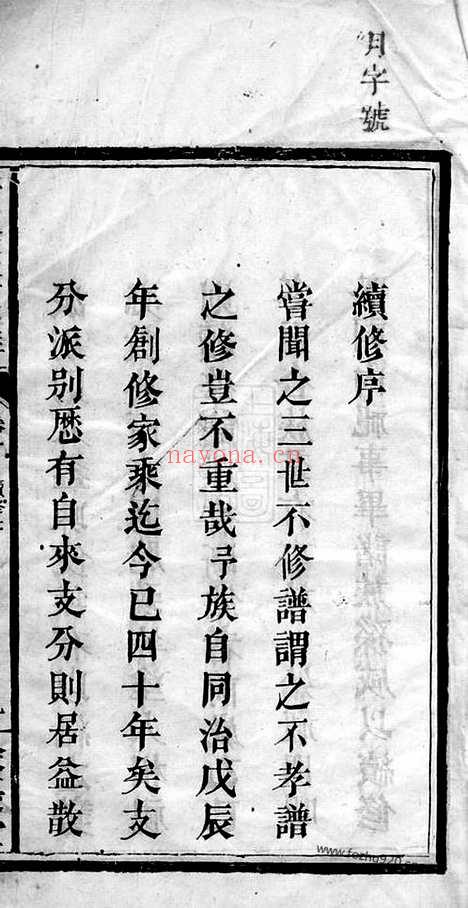 月字號
續修序
嘗聞之三世不修譜謂之不孝譜
之修豈不重哉予族自同治戊辰
年創修家乘迄今已四十年矣支
分派别歷有自來支分則居益散
nayona.cn